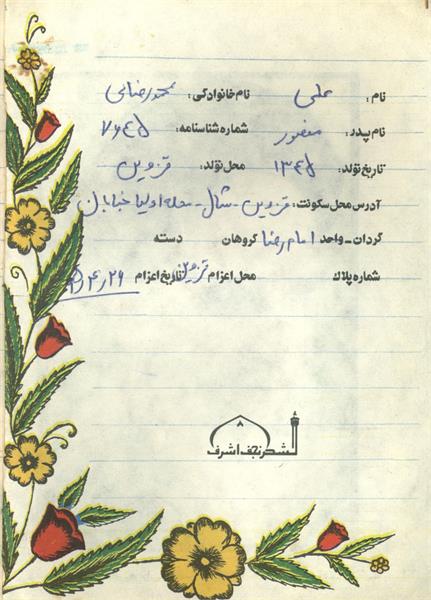 نام: علی نام خانوادگی: محمدرضائی
نام پدر: منصور شماره شناسنامه: ۷۶۴۵
تاریخ تولد: ۱۳۴۵ محل تولد: قزوین
آدرس محل سکونت: قزوین - شال - محله اولیا خیابان
گردان - واحد امام رضا گروهان دسته
شماره پلاک محل اعزام قزوین تاریخ اعزام ۶۵/۴/۲۶
لشکر نجف اشرف
۸